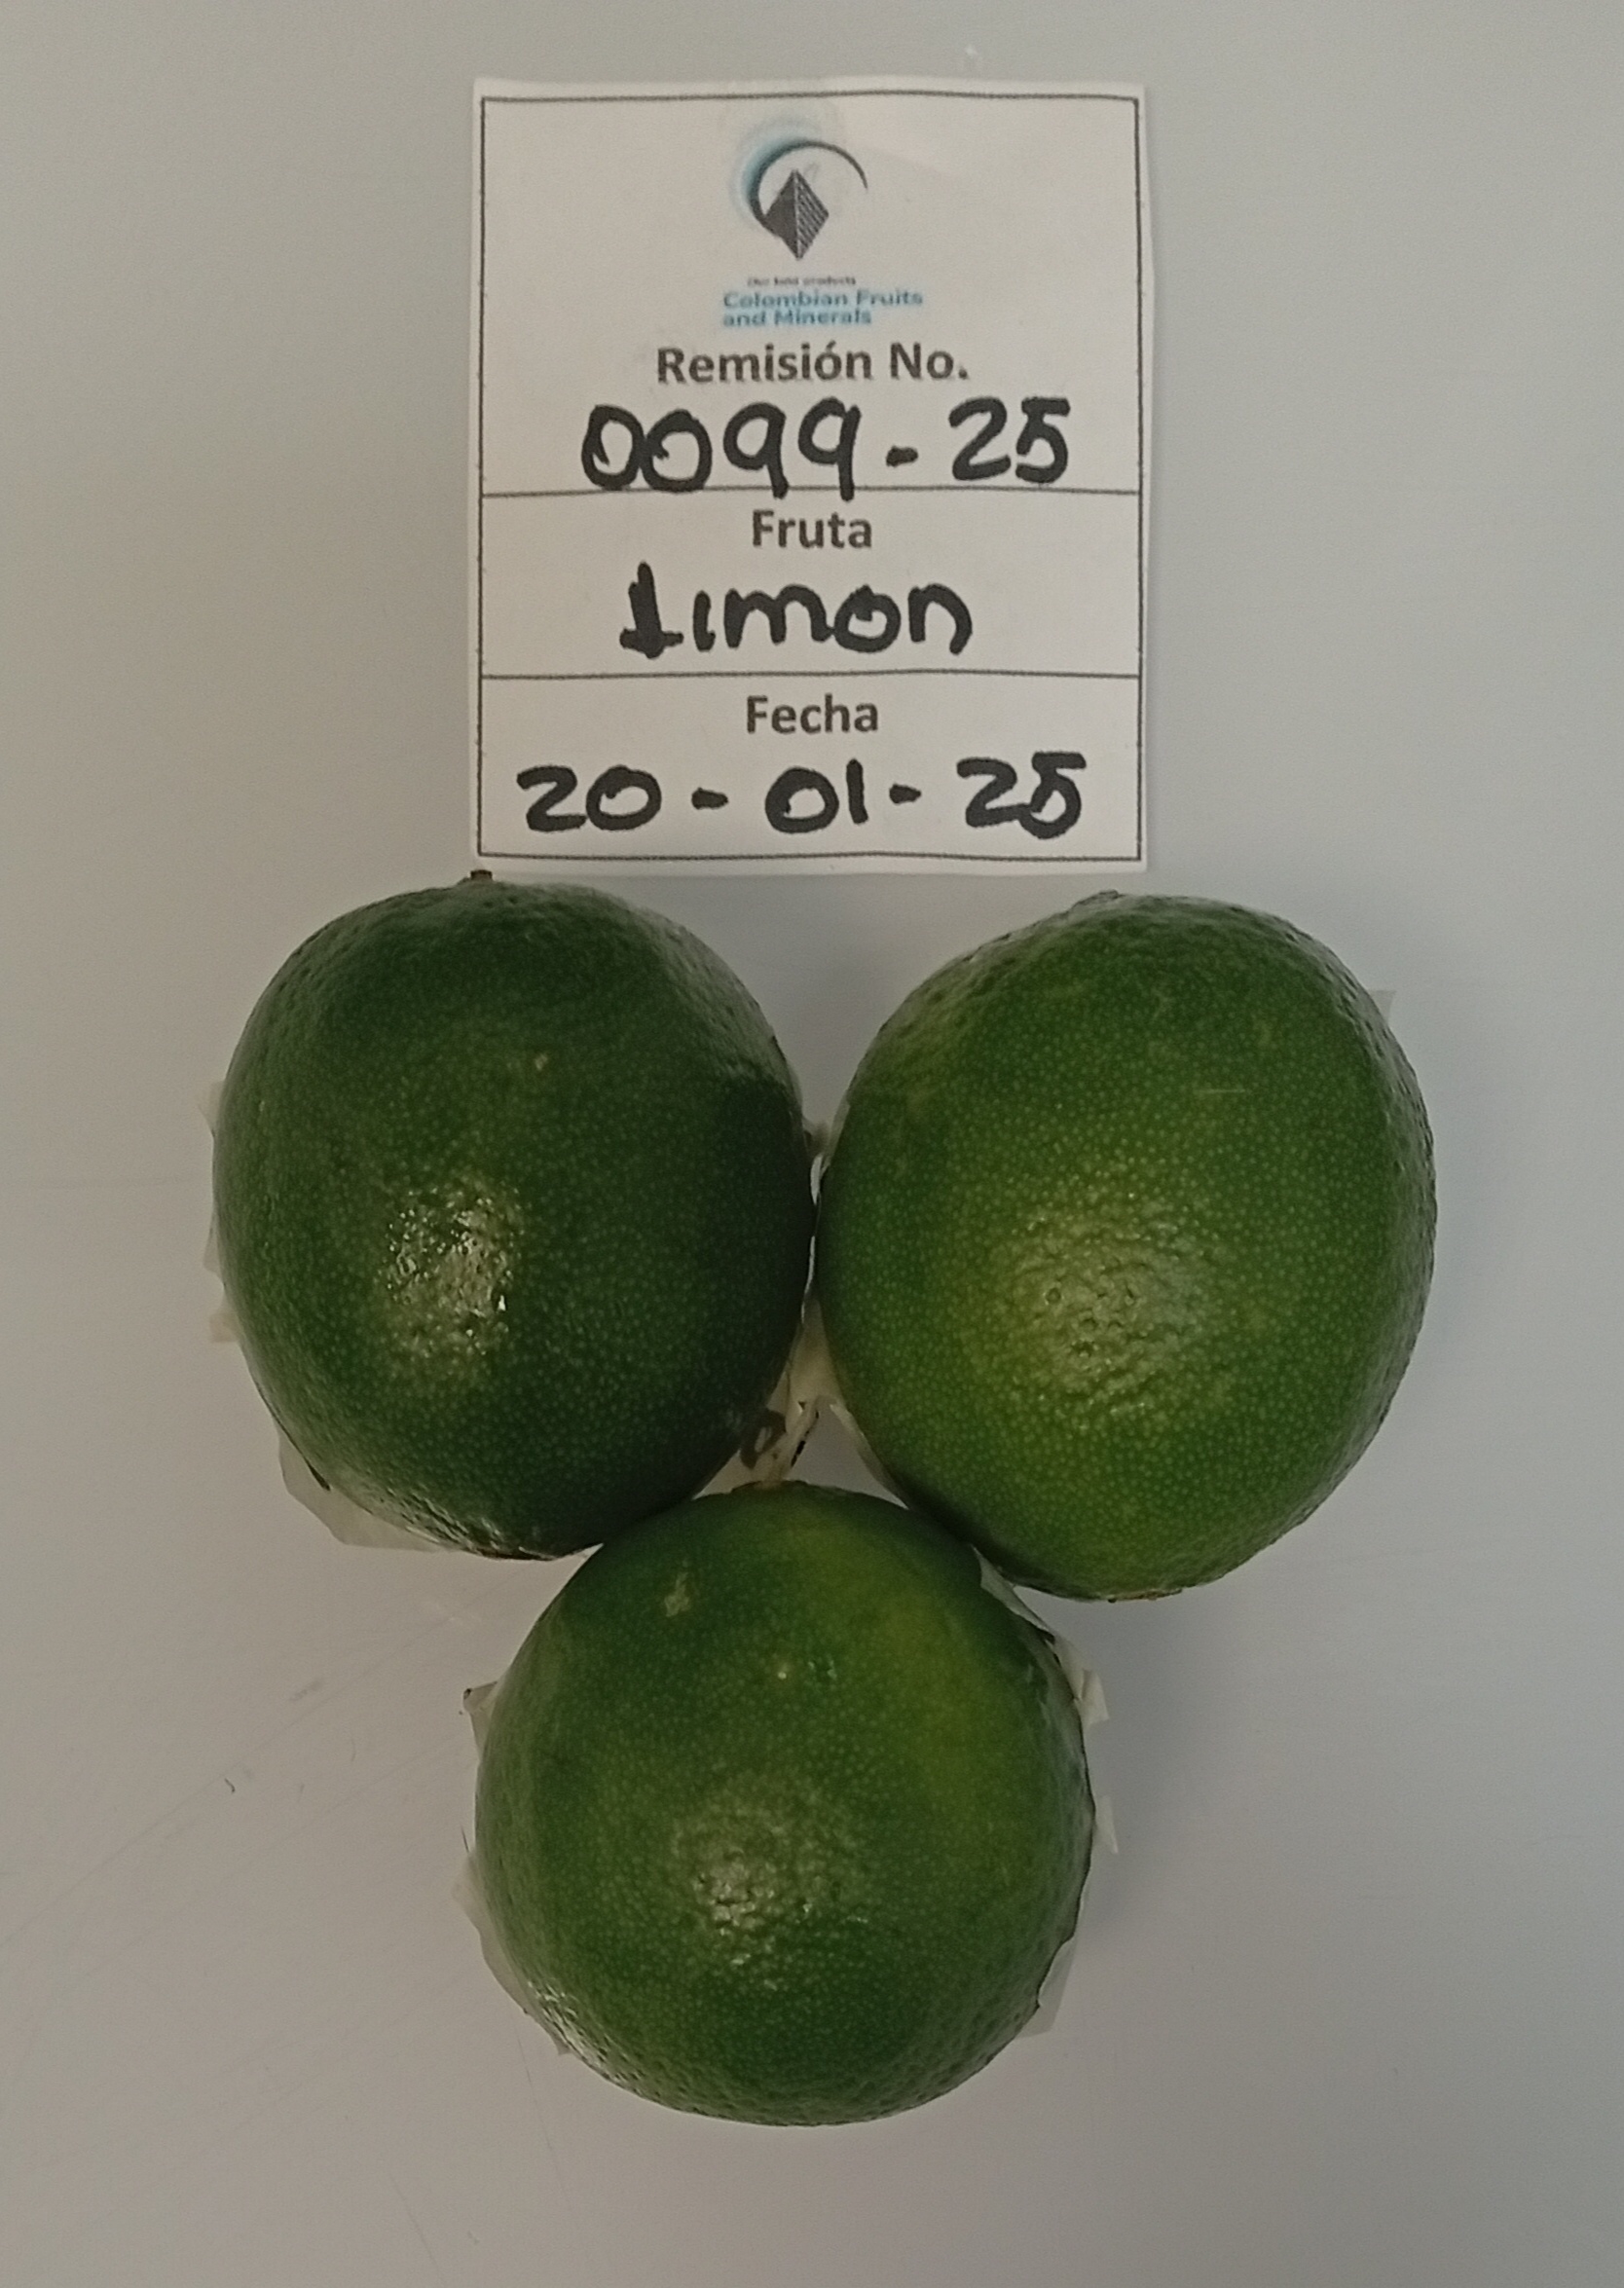 Our best products
Colombian Fruits
and Minerals
Remisión No.
0099-25
Fruta
Limon
Fecha
20-01-25